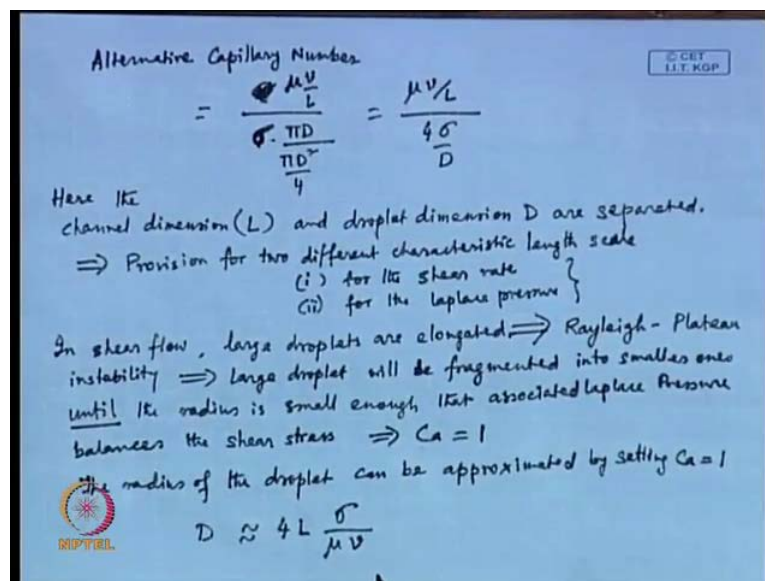 Alternative Capillary Number
© CET
I.I.T. KGP
= μ v/L / σ · πD / πD²/4 = μ v/L / 4σ/D
Here the
channel dimension (L) and droplet dimension D are separated.
⇒ Provision for two different characteristic length scale
(i) for the shear rate
(ii) for the laplace pressure }
In shear flow, large droplets are elongated ⇒ Rayleigh - Plateau
instability ⇒ Large droplet will be fragmented into smaller ones
until the radius is small enough that associated laplace Pressure
balances the shear stress ⇒ Ca = 1
The radius of the droplet can be approximated by setting Ca = 1
D ≈ 4 L σ / μ v
NPTEL